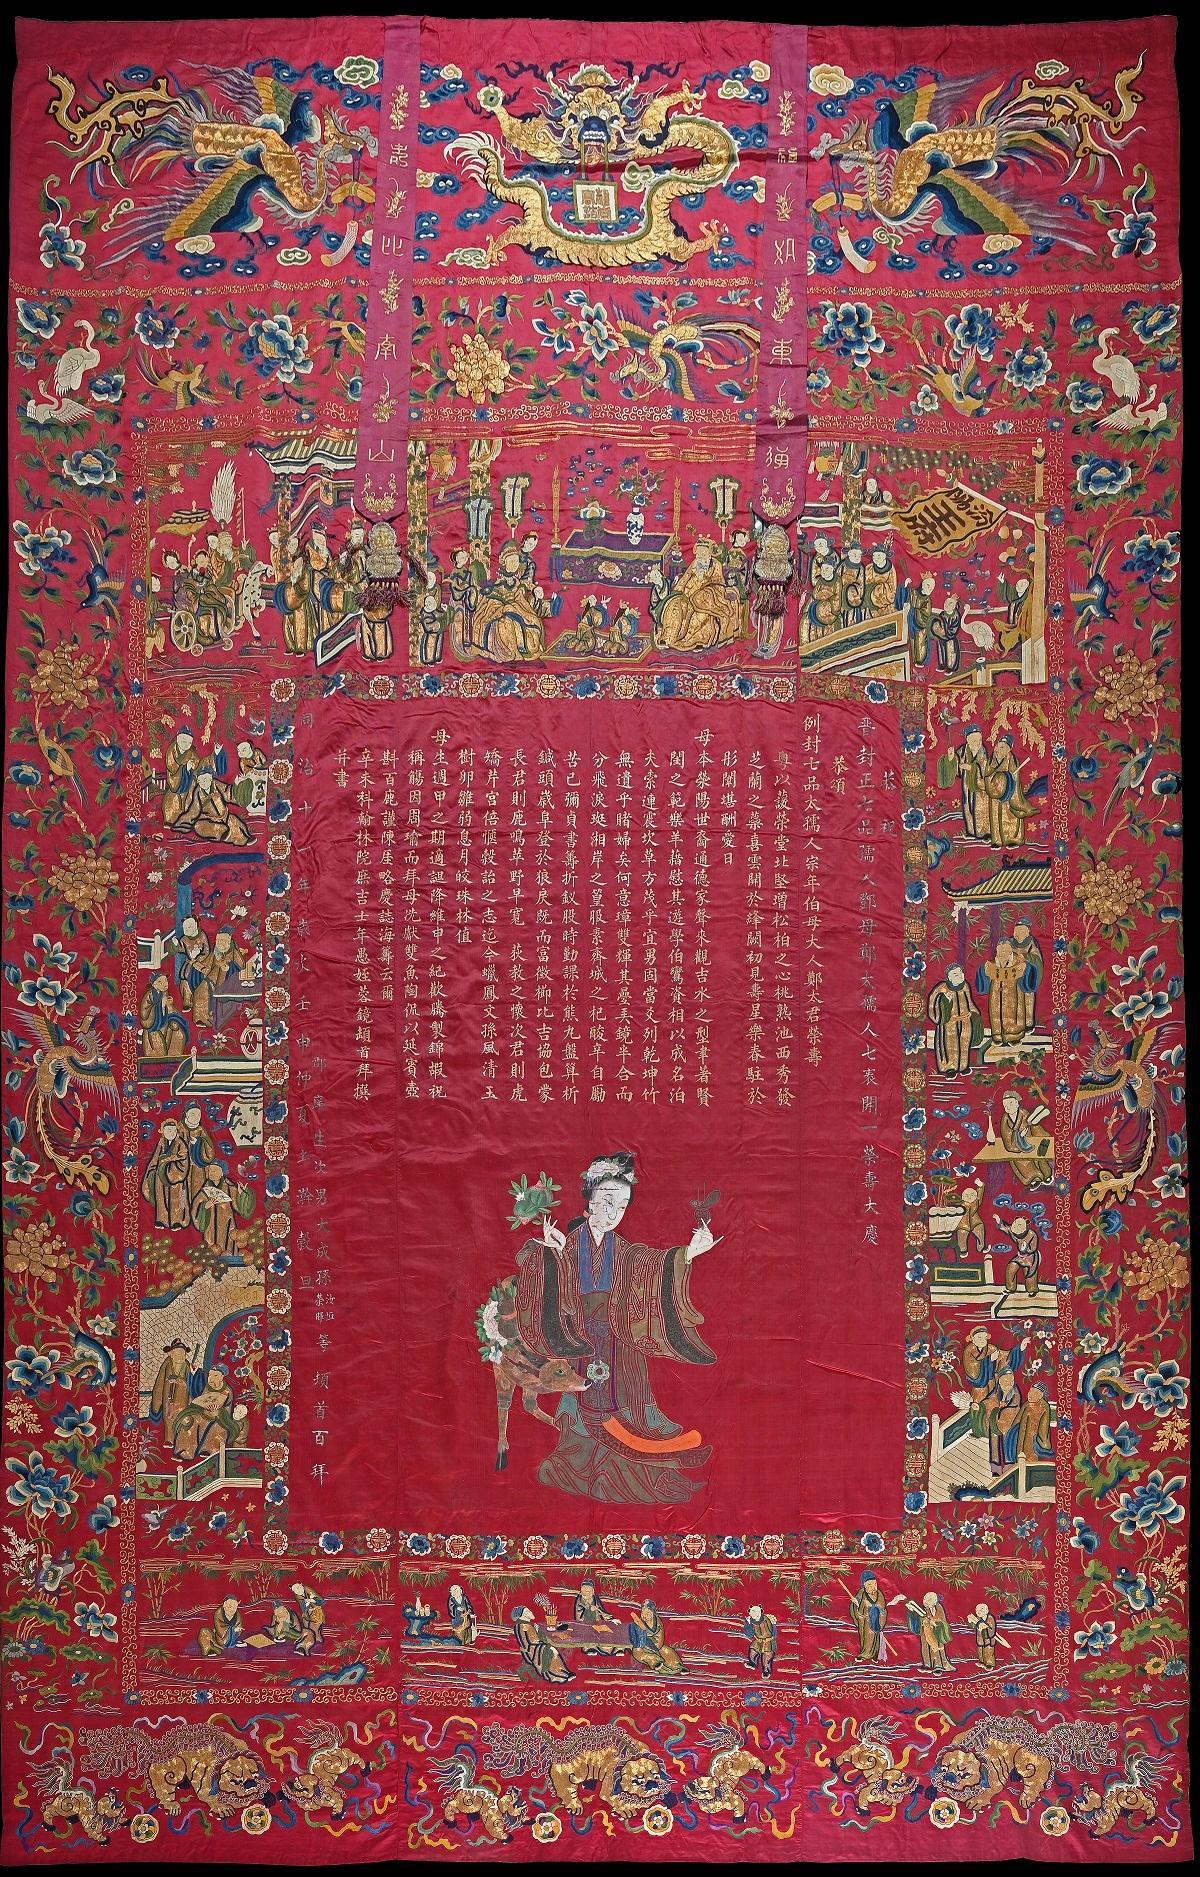 福如東海
壽比南山
汾陽王府
恭祝
晋封正七品孺人鄭母鄭太孺人七袠開一榮壽大慶
例封七品太孺人宗年伯母大人鄭太君榮壽
恭頌
粤以護榮堂北堅增松柏之心桃熟池西秀發
芝蘭之蘂喜雲開於絳闕初見壽星樂春駐於
彤闈堪酬愛日
母本滎陽世裔通德家聲來觀吉水之型聿著賢
閨之範樂羊藉慰其遊學伯鸞資相以成名洎
夫索連震坎草方茂乎宜男固當爻列乾坤竹
無遺乎睹婦矣何意璋雙輝其疊弄鏡半合而
分飛淚斑湘岸之篁服素齊城之杞酸辛自勵
苦已彌貞書籌折釵股時勤課於熊丸盤算析
鍼頭歲阜登於狼戾既而富徵櫛比吉協包蒙
長君則鹿鳴草野早寬 荻教之懷次君則虎
矯芹宮倍愜穀詒之志迄今蠟鳳文孫風清玉
樹卵雛弱息月皎珠林值
母生週甲之期適誕降維申之紀歡騰製錦嘏祝
稱觴因周瑜而拜母洗獻雙魚陶侃以延賓壺
斟百鹿謹陳厓略慶誌海籌云爾
辛未科翰林院庶吉士年愚姪蓉鏡頓首拜撰
并書
郡庠生次男大成孫等頓首百拜
同治十一年歲次壬申仲夏上澣穀旦